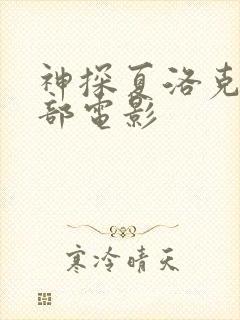 神探夏洛克
部電影
寒冷晴天